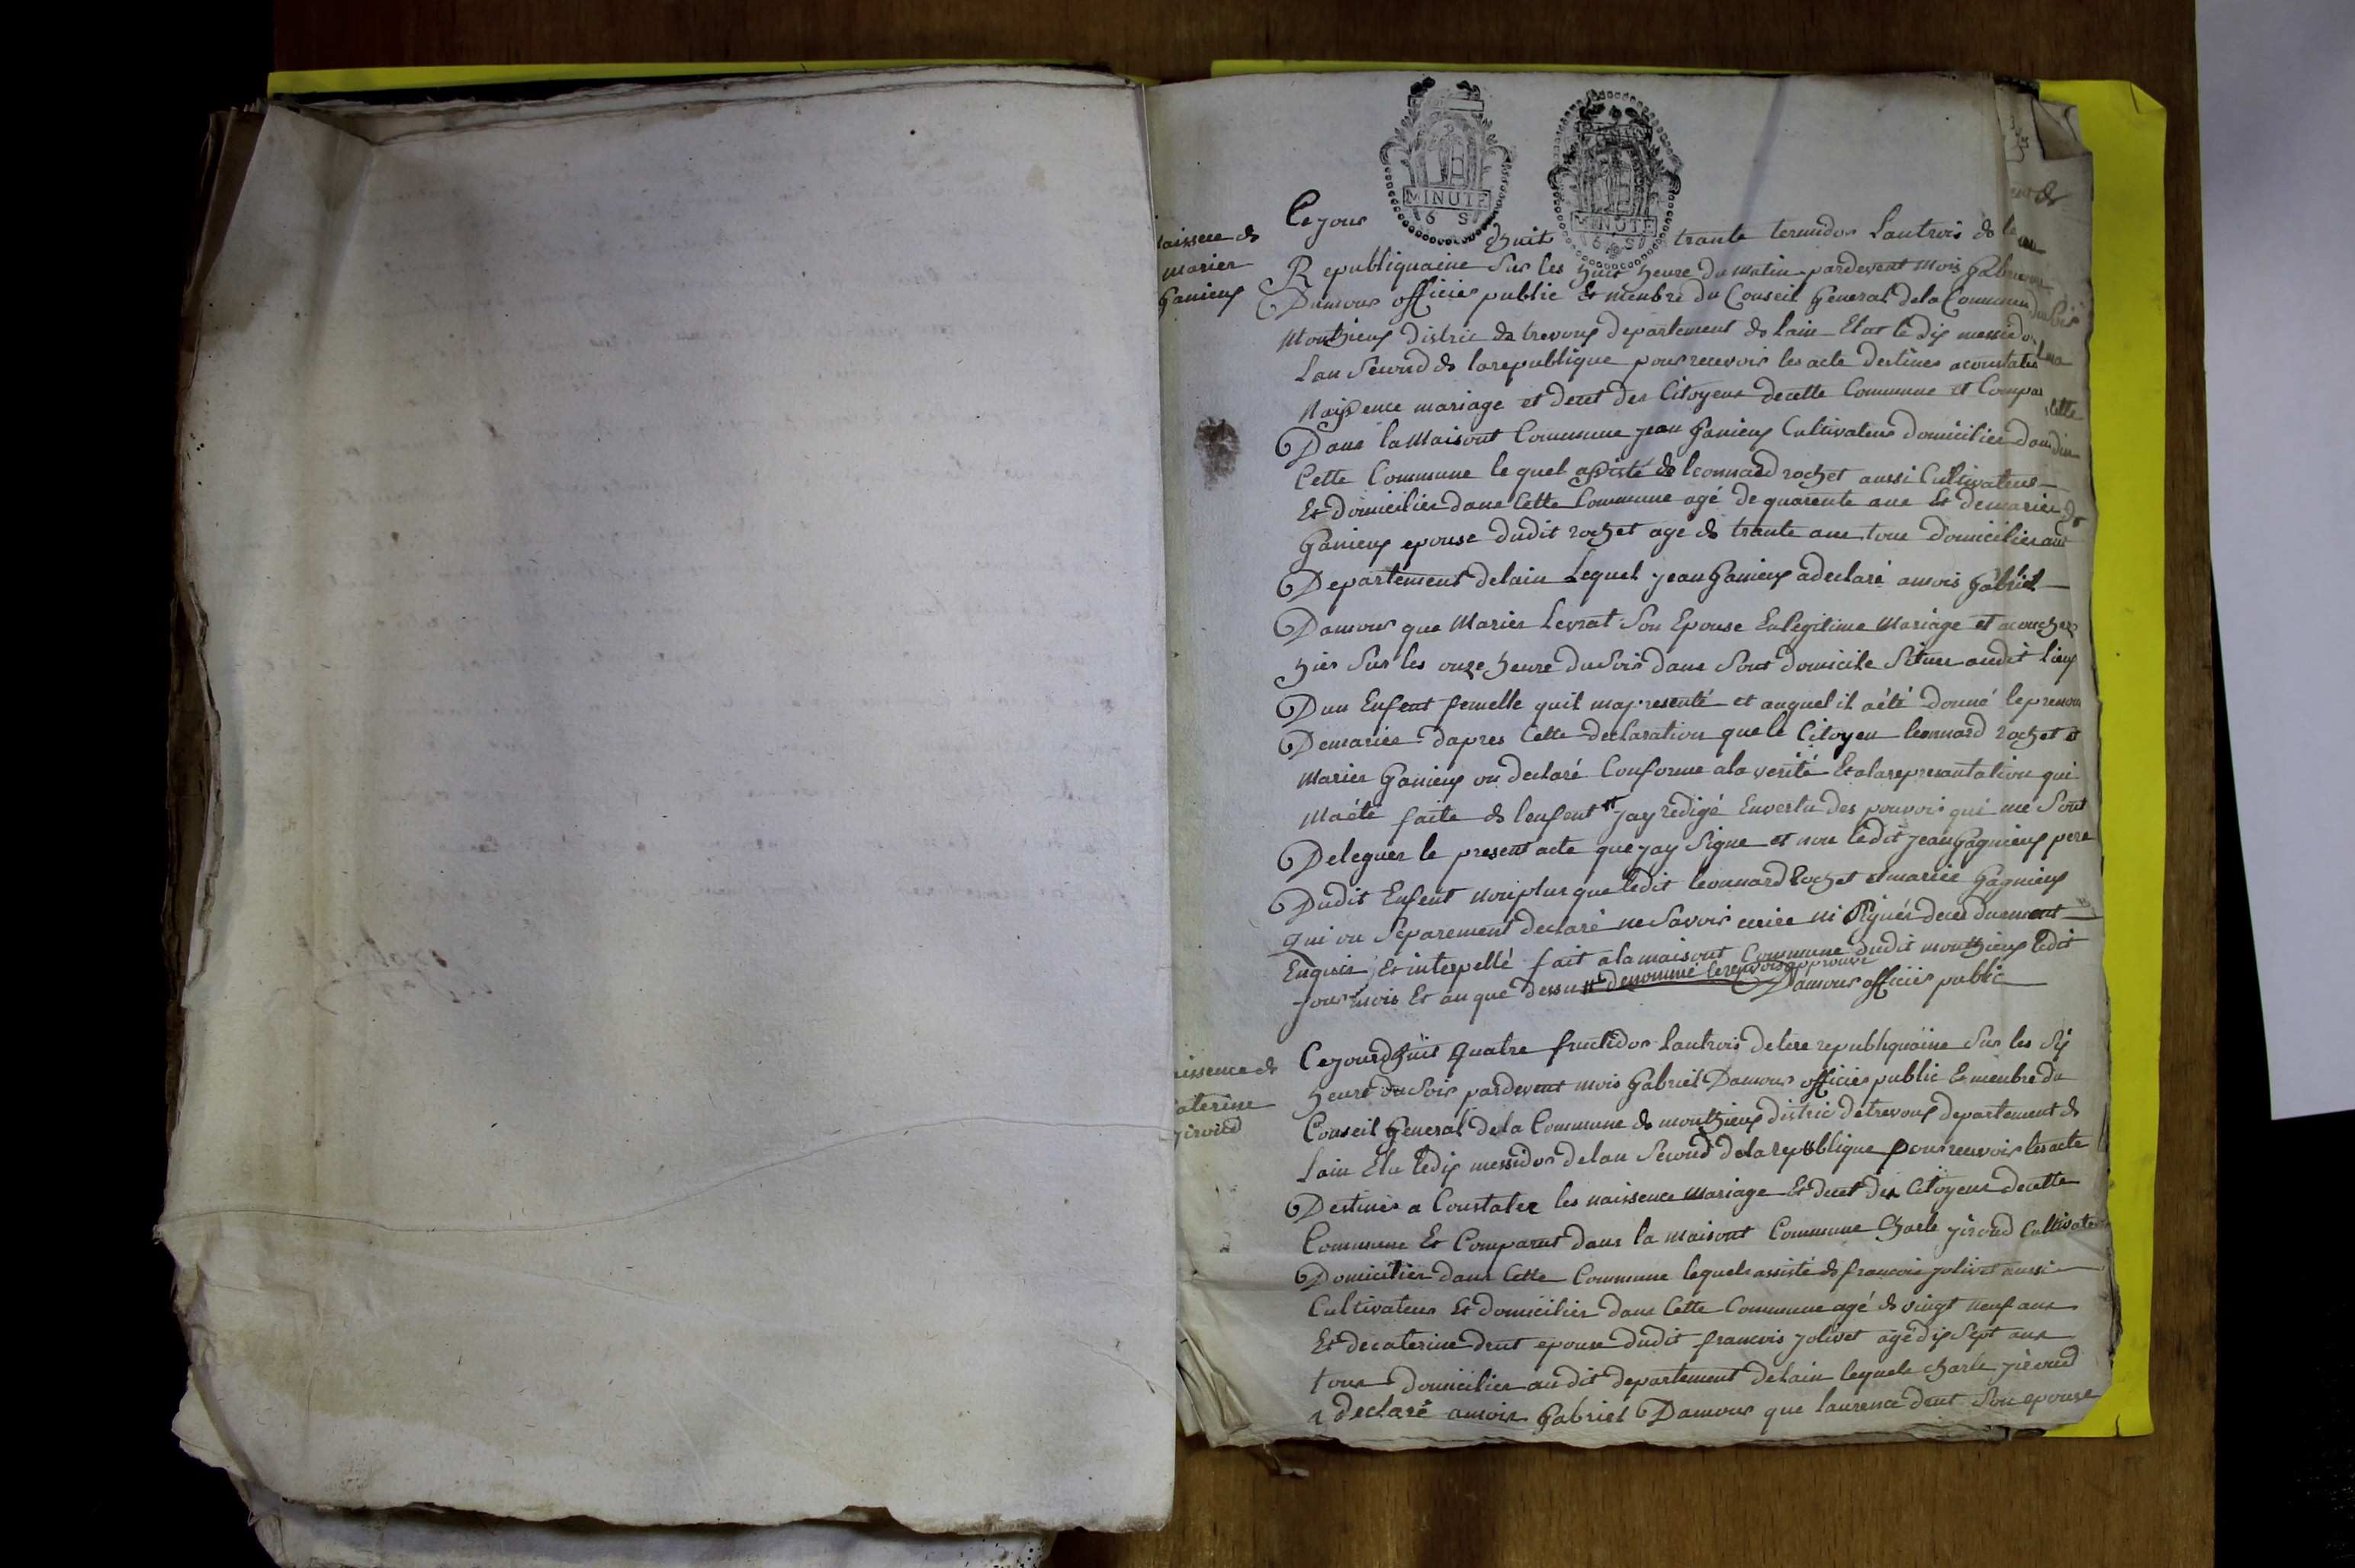 MINUTE
6 S
MINUTE
6 S
aissence de
marier
Ganieux
Cejour dhuit trante termidor Lantrois de le
Republiquaine Sur les huit heure du matin pardevent mois Gabriel
Damour officier public Et menbre du Conseil General dela Commune
Monthieux distric de trevoux departement de Lain Elat le dix messidor
Lan Second de larepublique pour recevoir les acte destines aconstater
Naissence mariage et decet des Citoyens decette Commune et Compar
Dans la Maisont Commune jean Ganieux Cultivateur domicilier dans
Cette Commune le quel assisté de leonnard rochet aussi Cultivateur
Et domicilier dans Cette Commune agé de quarente ans Et demarier
Ganieux epouse dudit rochet age de trante ans tous domicilier aud
Departement delain Lequel jean Ganieux adeclaré amois Gabriel
Damour que Marier Levrat Son Epouse Enlegitime Mariage et acoucher
hier Sur les onze heure du Soir dans Sont domicile Situer audit lieux
Dun Enfent femelle quil map resenté et auquel il aété donné leprenom
Demarier dapres Cette declaration que le Citoyen leonnard rochet et
Marier Ganieux on declaré Conforme ala verité Etalarepresantation qui
Maété faite de lenfent jay redigé Envertu des pouvoir qui me Sont
Deleguer le present acte que jay Signe et non ledit jean Gagnieux pere
Dudit Enfent nonplus que ledit leonnard Rochet et marier Gagnieux
qui on Separement declaré ne Savoir ecrire ni Signér deces duement
Enquis Et interpellé fait ala maisont Commune dudit monthieux ledit
jour mois Et an que dessu denommé lerenvois approuvé
Damour officier public
issence de
aterine
giroud
Cejourdhuit quatre fructidor lantrois delere republiquaine Sur les Six
heure du Soir pardevent mois Gabriel Damour officier public Et menbre du
Conseil General dela Commune de monthieux distric detrevoux departement de
Lain Elu ledix messidor delan Second delarepublique pour recevoir les acte
Destines a Constater les naissence mariage Et decet des Citoyens decette
Commune Et Comparut dans la maisont Commune Charle giroud Cultivateur
Domicilier dans Cette Commune lequel assisté de francois jolivet aussi
Cultivateur Et domicilier dans Cette Commune agé de vingt neuf ans
Et decaterine drut epouse dudit francois jolivet agé dix Sept ans
tous domicilier au dit departement delain lequele charle giroud
a declaré amois Gabriel Damour que laurence drut Son epouse